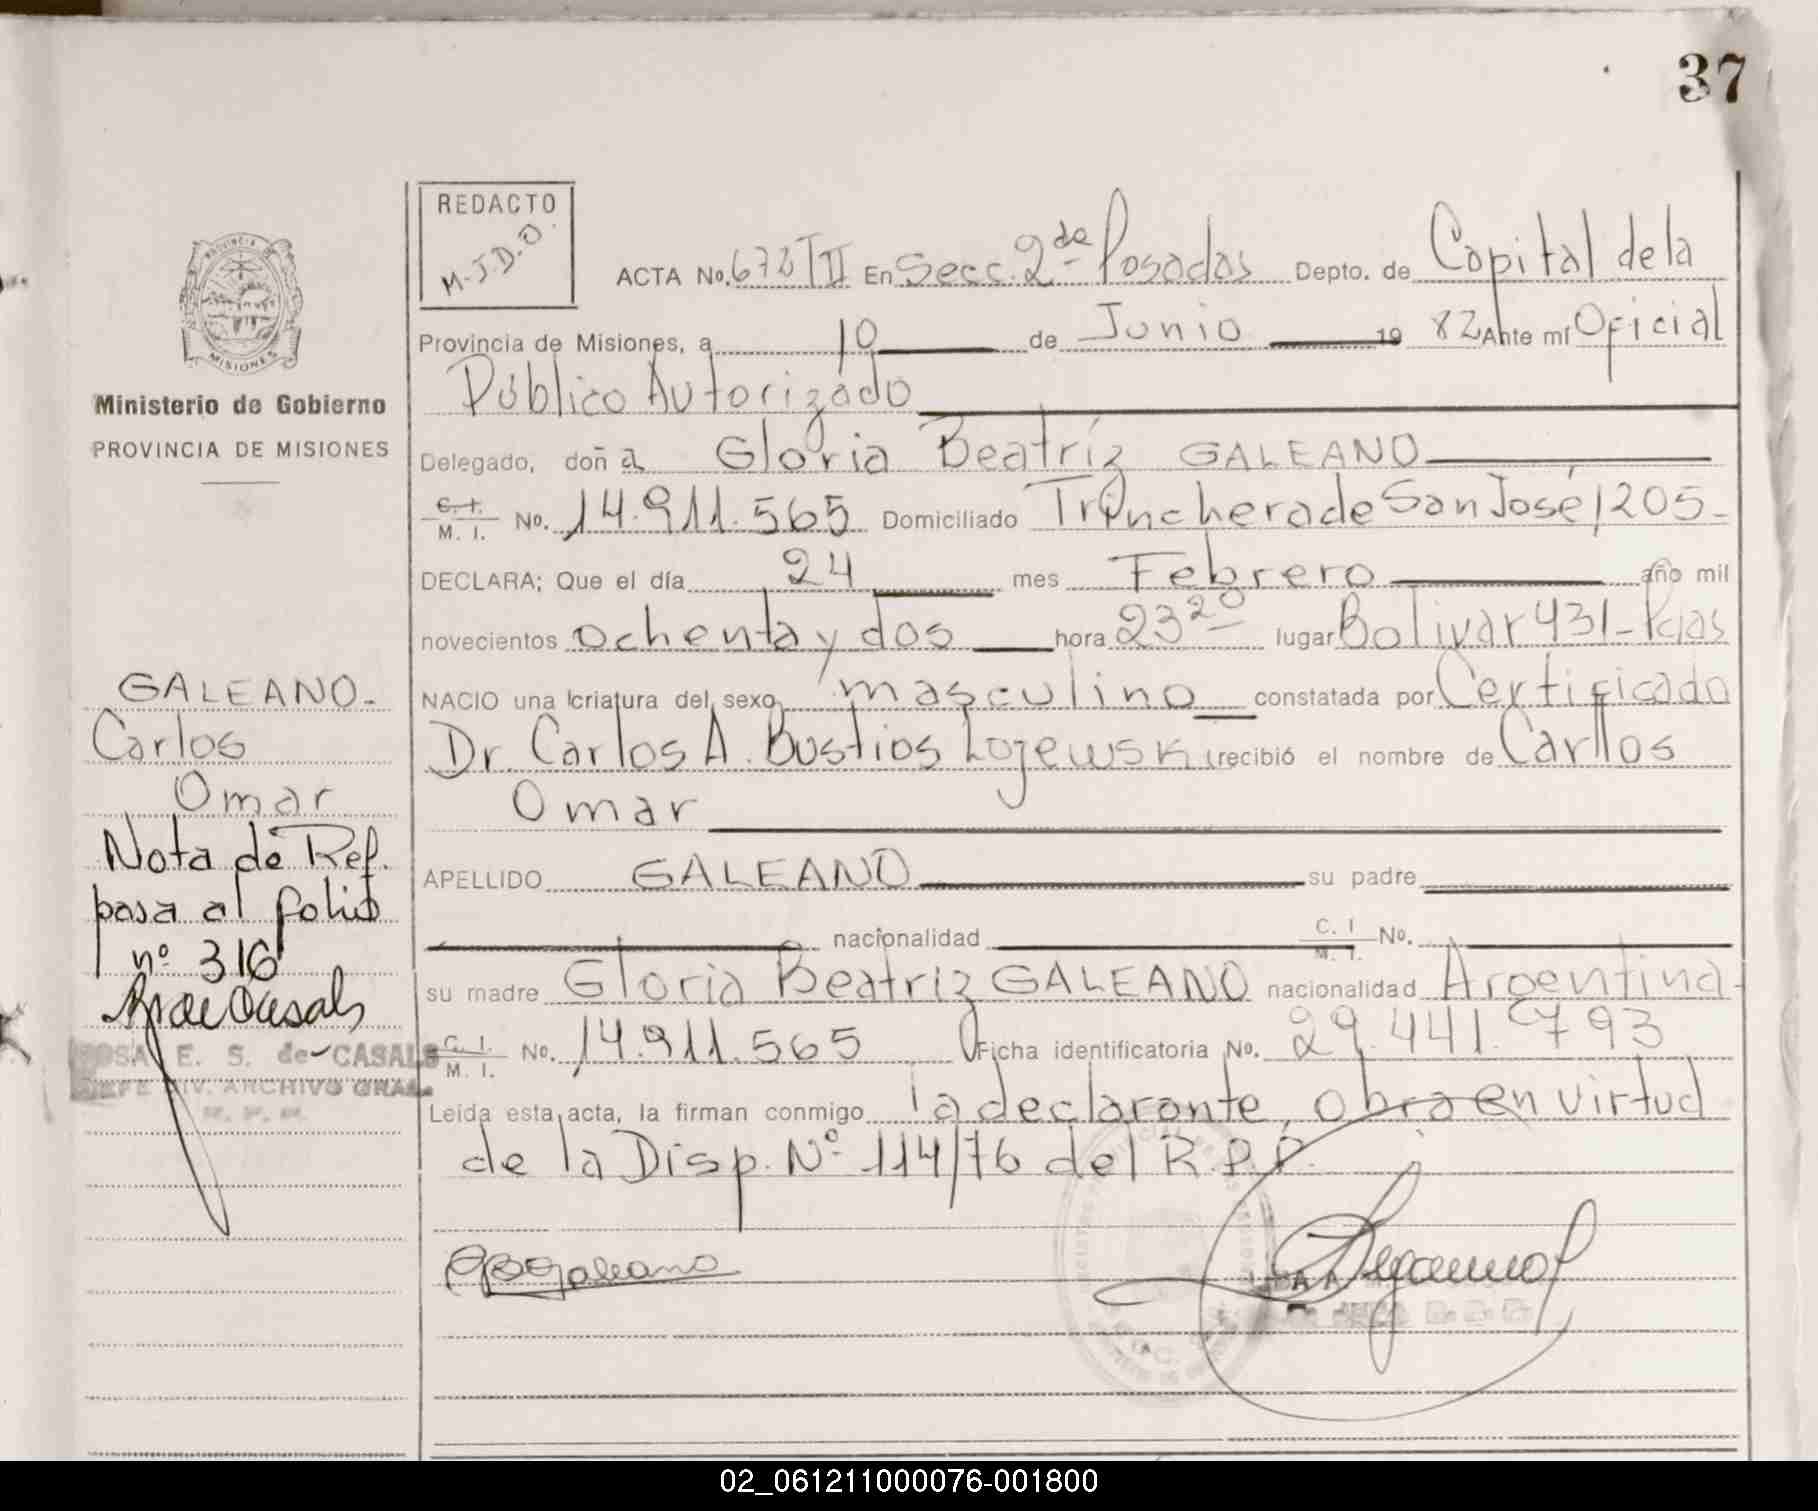 37
REDACTO
M.J.D.O.
ACTA No. 672 TII En Secc. 2da Posadas Depto. de Capital de la
Provincia de Misiones, a 10 de Junio 19 82 Ante mí Oficial
Público Autorizado
PROVINCIA DE
MISIONES
Ministerio de Gobierno
PROVINCIA DE MISIONES
Delegado, doña Gloria Beatríz GALEANO
C. I.
M. I. No. 14.911.565 Domiciliado Trinchera de San José 1205-
DECLARA; Que el día 24 mes Febrero año mil
novecientos ochenta y dos hora 23 20 lugar Bolivar 431- Pdas
NACIO una criatura del sexo masculino constatada por Certificado
Dr. Carlos A. Bustios Lojewski recibió el nombre de Carlos
Omar
APELLIDO GALEANO su padre
nacionalidad C. I.
M. I. No.
su madre Gloria Beatriz GALEANO nacionalidad Argentina-
C. I.
M. I. No. 14.911.565 Ficha identificatoria No. 29.441.793
Leída esta acta, la firman conmigo la declarante, obra en virtud
de la Disp. Nº 114/76 del R.P.P.
GALEANO-
Carlos
Omar
Nota de Ref.
pasa al folio
nº 316
R de Casals
ROSA E. S. de CASALS
JEFE DIV. ARCHIVO GRAL.
GBGaleano
02_061211000076-001800